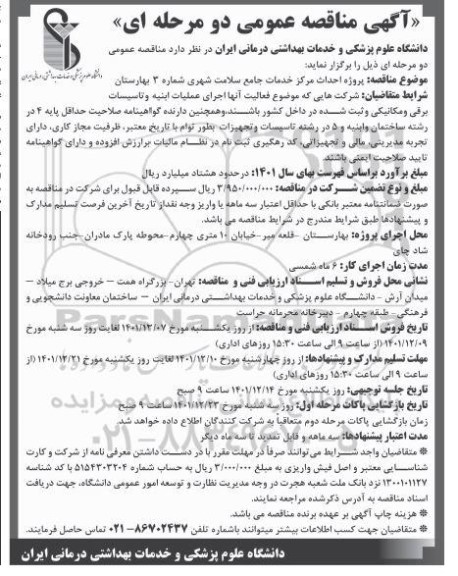 «آگهی مناقصه عمومی دو مرحله ای»
دانشگاه علوم پزشکی و خدمات بهداشتی درمانی ایران در نظر دارد مناقصه عمومی
دو مرحله ای ذیل را برگزار نماید:
موضوع مناقصه: پروژه احداث مرکز خدمات جامع سلامت شهری شماره ۳ بهارستان
شرایط متقاضیان: شرکت هایی که موضوع فعالیت آنها اجرای عملیات ابنیه و تاسیسات
برقی ومکانیکی وثبت شده در داخل کشور باشند.وهمچنین دارنده گواهینامه صلاحیت حداقل پایه ۴ در
رشته ساختمان وابنیه و ۵ در رشته تاسیسات وتجهیزات بطور توام با تاریخ معتبر، ظرفیت مجاز کاری، دارای
تجربه مدیریتی، مالی و تجهیزاتی، کد رهگیری ثبت نام در نظام مالیات برارزش افزوده و دارای گواهینامه
تایید صلاحیت ایمنی باشند.
مبلغ برآورد براساس فهرست بهای سال ۱۴۰۱: درحدود هشتاد میلیارد ریال
مبلغ و نوع تضمین شرکت در مناقصه: ۳/۹۵۰/۰۰۰/۰۰۰ ریال سپرده قابل قبول برای شرکت در مناقصه به
صورت ضمانتنامه معتبر بانکی با حداقل اعتبار سه ماهه یا واریز وجه نقداز تاریخ آخرین فرصت تسلیم مدارک
و پیشنهادها طبق شرایط مندرج در شرایط مناقصه می باشد.
محل اجرای پروژه: بهارستان –قلعه میر–خیابان ۱۰ متری چهارم–محوطه پارک مادران–جنب رودخانه
شاد چای
مدت زمان اجرای کار: ۶ ماه شمسی
نشانی محل فروش و تسلیم اسناد ارزیابی فنی و مناقصه: تهران- بزرگراه همت – خروجی برج میلاد –
میدان آرش – دانشگاه علوم پزشکی و خدمات بهداشتی درمانی ایران – ساختمان معاونت دانشجویی و
فرهنگی – طبقه چهارم - دبیرخانه محرمانه حراست
تاریخ فروش اسناد ارزیابی فنی و مناقصه: از روز یکشنبه مورخ ۱۴۰۱/۱۲/۰۷ لغایت روز سه شنبه مورخ
۱۴۰۱/۱۲/۰۹ (از ساعت ۹ الی ساعت ۱۵:۳۰ روزهای اداری)
مهلت تسلیم مدارک و پیشنهادها: از روز چهارشنبه مورخ ۱۴۰۱/۱۲/۱۰ لغایت روز یکشنبه مورخ ۱۴۰۱/۱۲/۲۱ (از
ساعت ۹ الی ساعت ۱۵:۳۰ روزهای اداری)
تاریخ جلسه توجیهی: روز یکشنبه مورخ ۱۴۰۱/۱۲/۱۴ ساعت ۹ صبح
تاریخ بازگشایی پاکات مرحله اول: روز سه شنبه مورخ ۱۴۰۱/۱۲/۲۳ ساعت ۹ صبح
زمان بازگشایی پاکات مرحله دوم متعاقباً به شرکت کنندگان اطلاع داده خواهد شد.
مدت اعتبار پیشنهادها: سه ماهه و قابل تمدید تا سه ماه دیگر
* متقاضیان واجد شرایط می‌توانند صرفاً در مهلت مقرر با در دست داشتن معرفی نامه از شرکت و کارت
شناسایی معتبر و اصل فیش واریزی به مبلغ ۳/۰۰۰/۰۰۰ ریال به حساب شماره ۵۱۵۴۳۰۳۲۰۴ با کد شناسه
۱۳۰۰۱۰۱۱۲۷ نزد بانک ملت شعبه هجرت در وجه مدیریت نظارت و توسعه امور عمومی دانشگاه، جهت دریافت
اسناد مناقصه به آدرس ذکرشده مراجعه نمایند.
* هزینه چاپ آگهی بر عهده برنده مناقصه می باشد.
* متقاضیان جهت کسب اطلاعات بیشتر میتوانند باشماره تلفن ۸۶۷۰۲۴۳۷-۰۲۱ تماس حاصل فرمایند.
دانشگاه علوم پزشکی و خدمات بهداشتی درمانی ایران